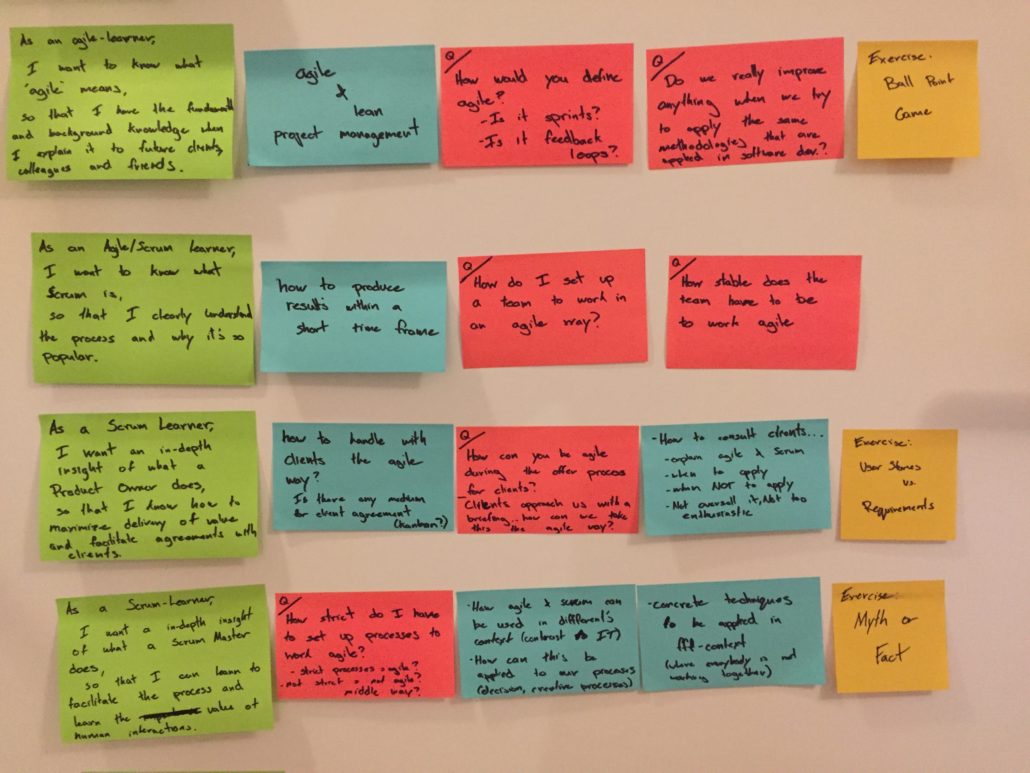 As an agile-learner,
I want to know what
"agile" means,
so that I have the fundamentals
and background knowledge when
I explain it to future clients,
colleagues and friends.
agile
&
lean
project management
Q/
How would you define
agile?
- Is it sprints?
- Is it feedback
loops?
Q/
Do we really improve
anything when we try
to apply the same
methodologies that are
applied in software dev.?
Exercise:
Ball Point
Game
As an Agile/Scrum Learner,
I want to know what
Scrum is,
so that I clearly understand
the process and why it's so
popular.
how to produce
results within a
short time frame
Q/
How do I set up
a team to work in
an agile way?
Q/
How stable does the
team have to be
to work agile
As a Scrum Learner,
I want an in-depth
insight of what a
Product Owner does,
so that I know how to
maximize delivery of value
and facilitate agreements with
clients.
how to handle with
clients the agile
way?
Is there any medium
for client agreement
(Kanban?)
Q/
How can you be agile
during the offer process
for clients?
- Clients approach us with a
briefing... how can we take
this the agile way?
- How to consult clients...
- explain agile & scrum
- when to apply
- when NOT to apply
- Not oversell it, Not too
enthusiastic
Exercise:
User Stories
vs.
Requirements
As a Scrum-Learner,
I want a in-depth insight
of what a Scrum Master
does,
so that I can learn to
facilitate the process and
learn the value of
human interactions.
Q/
How strict do I have
to set up processes to
work agile?
- strict processes = agile?
- not strict = not agile?
middle way?
- How agile & scrum can
be used in different's
context (contrast to IT)
- How can this be
applied to our processes
(decision, creative processes)
- concrete techniques
to be applied in
context
(where everybody is not
working together)
Exercise:
Myth or
Fact